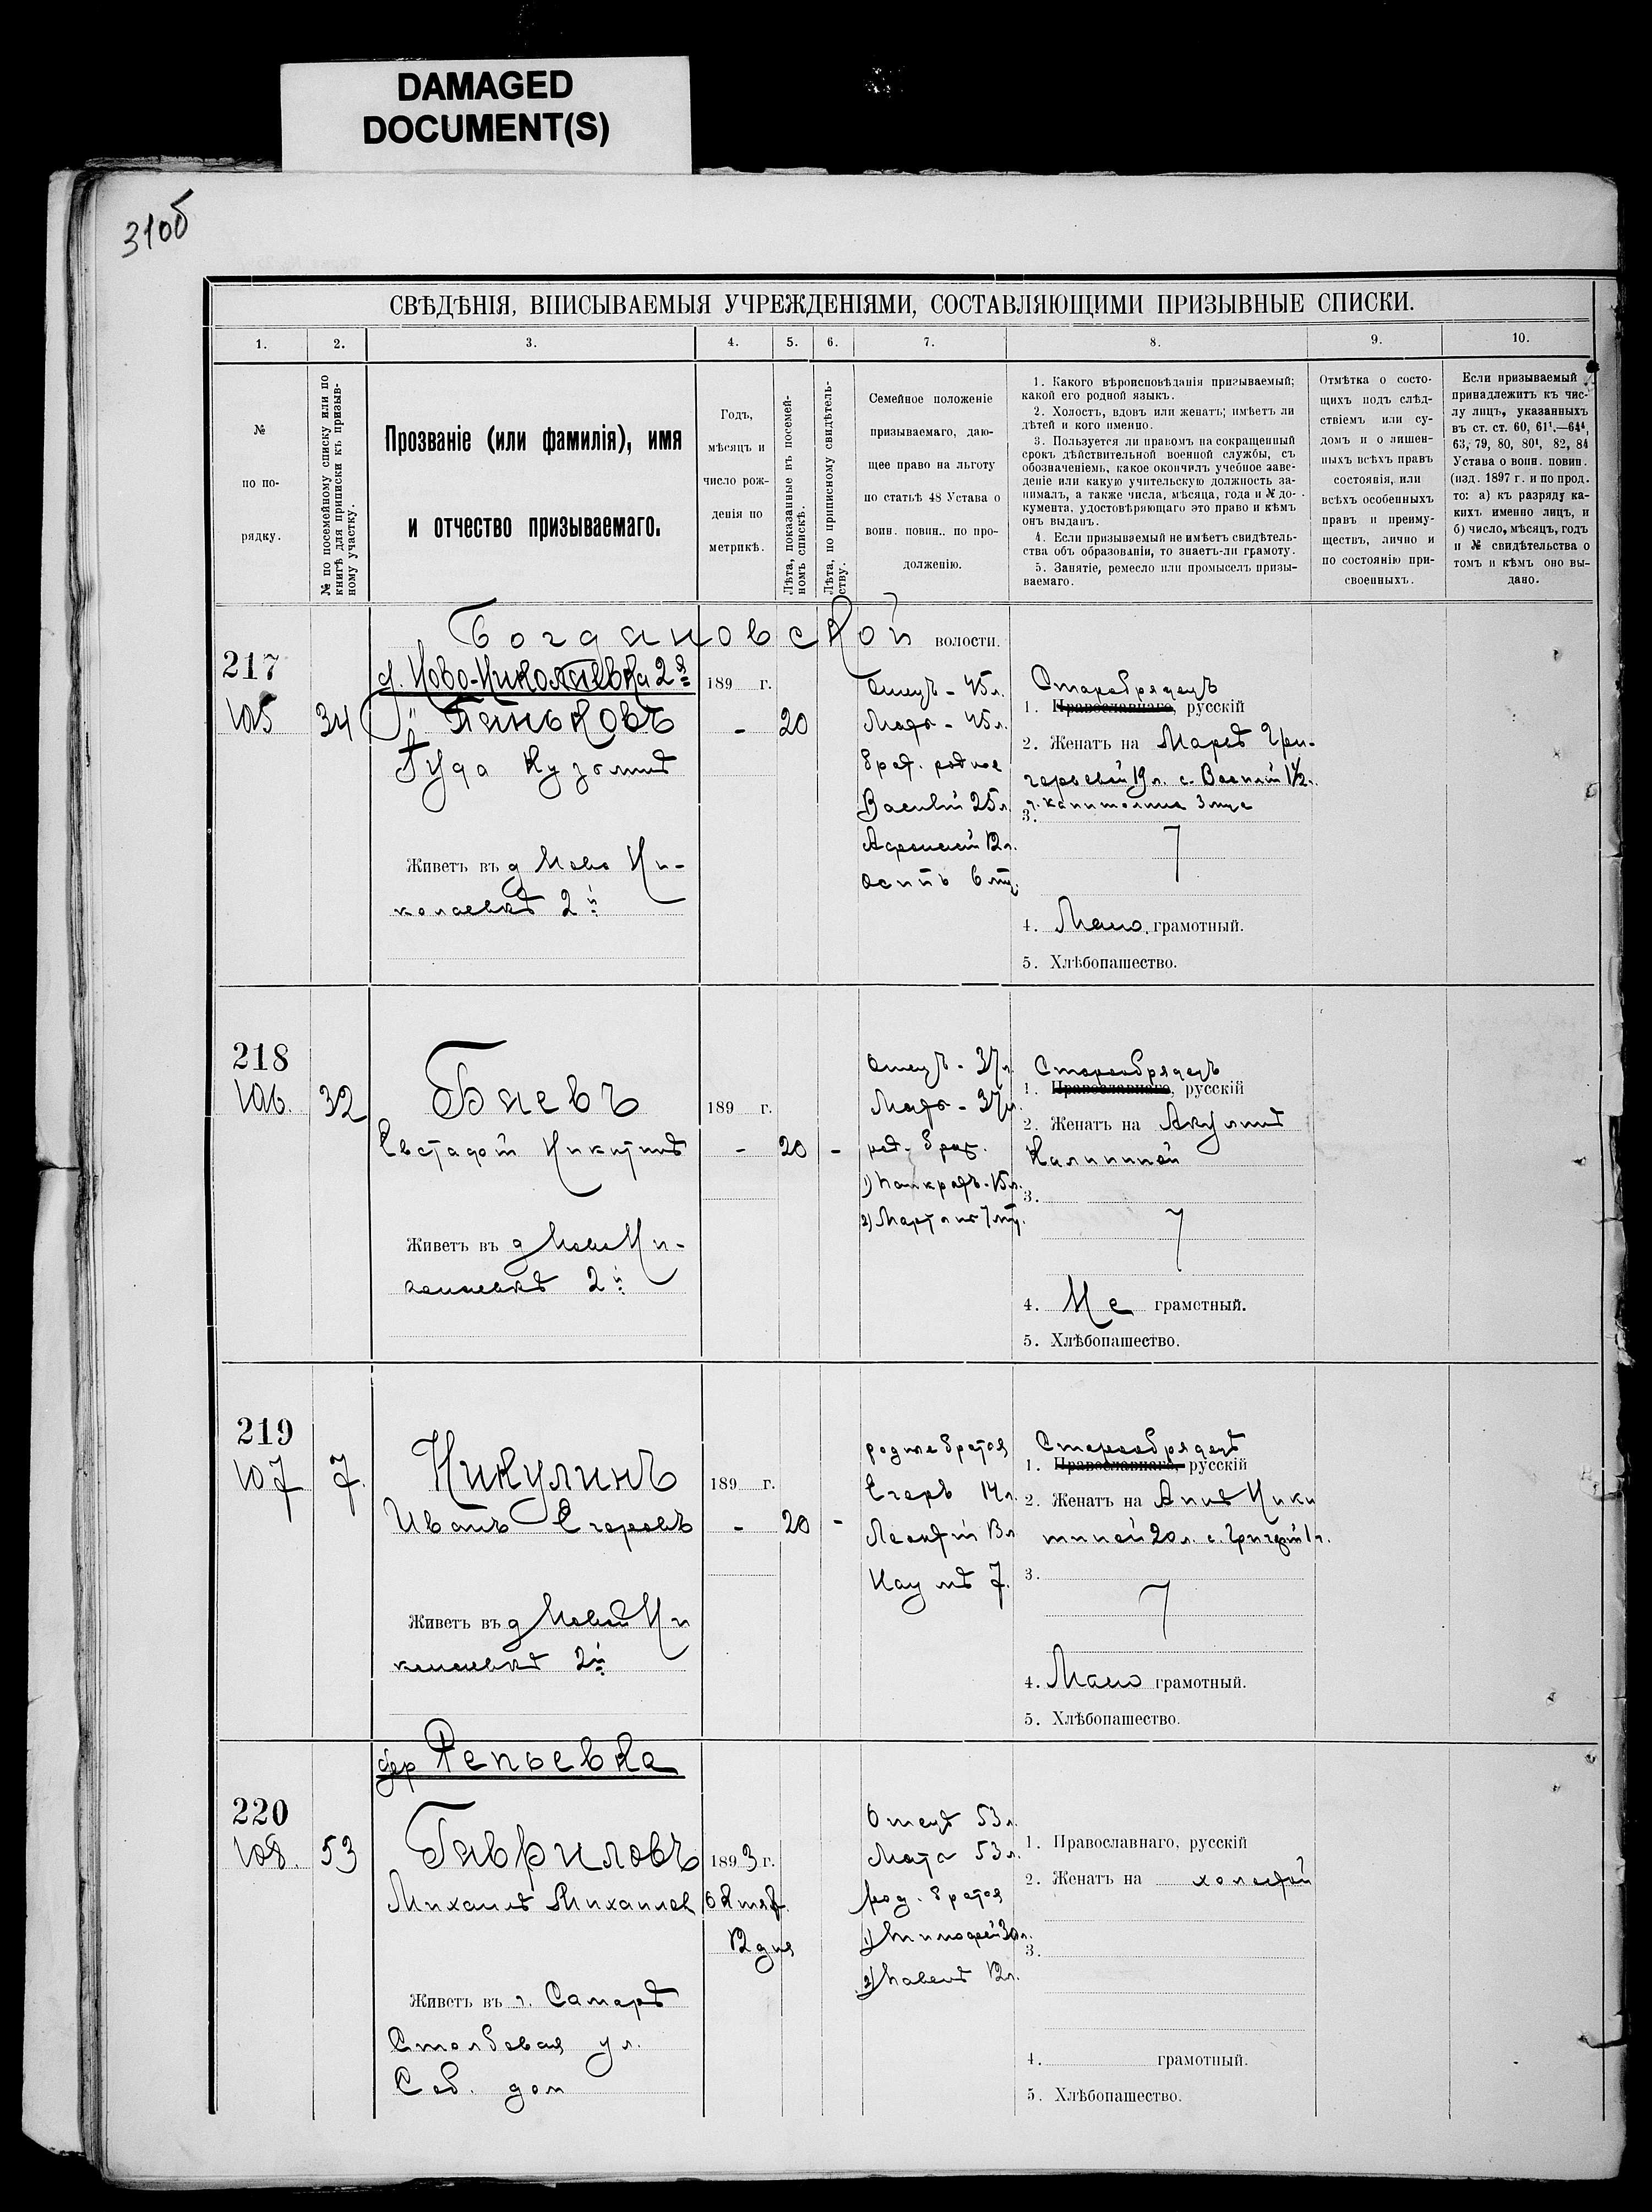 DAMAGED
DOCUMENT(S)
310б
СВѢДѢНІЯ, ВПИСЫВАЕМЫЯ УЧРЕЖДЕНІЯМИ, СОСТАВЛЯЮЩИМИ ПРИЗЫВНЫЕ СПИСКИ.
1. 2. 3. 4. 5. 6. 7. 8. 9. 10.
№
по по-
рядку.
№ по посемейному списку или по
книгѣ для приписки къ призыв-
ному участку.
Прозваніе (или фамилія), имя
и отчество призываемаго.
Годъ,
мѣсяцъ и
число рож-
денія по
метрикѣ.
Лѣта, показанные въ посемей-
номъ спискѣ.
Лѣта, по приписному свидѣтель-
ству.
Семейное положеніе
призываемаго, даю-
щее право на льготу
по статьѣ 48 Устава о
воин. повин.. по про-
долженію.
1. Какого вѣроисповѣданія призываемый;
какой его родной языкъ.
2. Холостъ, вдовъ или женатъ; имѣетъ ли
дѣтей и кого именно.
3. Пользуется ли правомъ на сокращенный
срокъ дѣйствительной военной службы, съ
обозначеніемъ, какое окончилъ учебное заве-
деніе или какую учительскую должность за-
нималъ, а также числа, мѣсяца, года и № до-
кумента, удостовѣряющаго это право и кѣмъ
онъ выданъ.
4. Если призываемый не имѣетъ свидѣтель-
ства объ образованіи, то знаетъ-ли грамоту.
5. Занятіе, ремесло или промыселъ призы-
ваемаго.
Отмѣтка о состо-
щихъ подъ слѣд-
ствіемъ или су-
домъ и о лишен-
ныхъ всѣхъ правъ
состоянія, или
всѣхъ особенныхъ
правъ и преиму-
ществъ, лично и
по состоянію при-
своенныхъ.
Если призываемый
принадлежитъ къ чис-
лу лицъ, указанныхъ
въ ст. ст. 60, 61¹.—64⁴,
63, 79, 80, 80¹, 82, 84
Устава о воин. повин.
(изд. 1897 г. и по прод.
то: а) къ разряду ка-
кихъ именно лицъ, и
б) число, мѣсяцъ, годъ
и № свидѣтельства о
томъ и кѣмъ оно вы-
дано.
Богдановской волости.
217
105
34
д. Ново-Николаевка 2я
Паньковъ
Гуда Кузьминъ
Живетъ въ д Ново Ни-
колаевкѣ 2й
189 г.
-
20
Отецъ - 45 л.
Мать - 45 л.
брат. родные
Василій 25 л
Афонасій 12 л.
Осипъ 6 лѣт.
Старобрядецъ
1. Православнаго, русскій
2. Женатъ на Марѳѣ Гри-
горьевой 19 л. с. Василій 1½ г.
д. Капитолина 3 мус
3.
4. Мало грамотный.
5. Хлѣбопашество.
218
106.
32
Баевъ
Евстафій Никитинъ
Живетъ въ д Ново Ни-
колаевкѣ 2й
189 г.
-
20
-
Отецъ - 37 л
Мать - 37 л.
род. брат.
1) Панкратъ - 15 л.
2) Мартинъ 7 лѣт.
Старообрядецъ
1. Православнаго, русскій
2. Женатъ на Акулинѣ
Калининой
3.
4. Не грамотный.
5. Хлѣбопашество.
219
107
7.
Никулинъ
Иванъ Егоровъ
Живетъ въ д Новой Ни
колаевкѣ 2й
189 г.
-
20
-
родные братья
Егоръ 14 л.
Леонтій 13 л
Наумъ 7.
Старообрядецъ
1. Православнаго, русскій
2. Женатъ на Аннѣ Ники
тиной 20 л. с. Григорій 1 г.
3.
4. Мало грамотный.
5. Хлѣбопашество.
дер Репьевка
220
108.
53
Гавриловъ
Михаилъ Михаилов
Живетъ въ г. Самарѣ
Столбовая ул.
Соб. дом
1893 г.
Октяб.
12 дня
Отецъ 53 л.
Мать 53 л.
род. братья
1) Тимофей 30 л.
2) Павелъ 12 л.
1. Православнаго, русскій
2. Женатъ на холостой
3.
4. грамотный.
5. Хлѣбопашество.